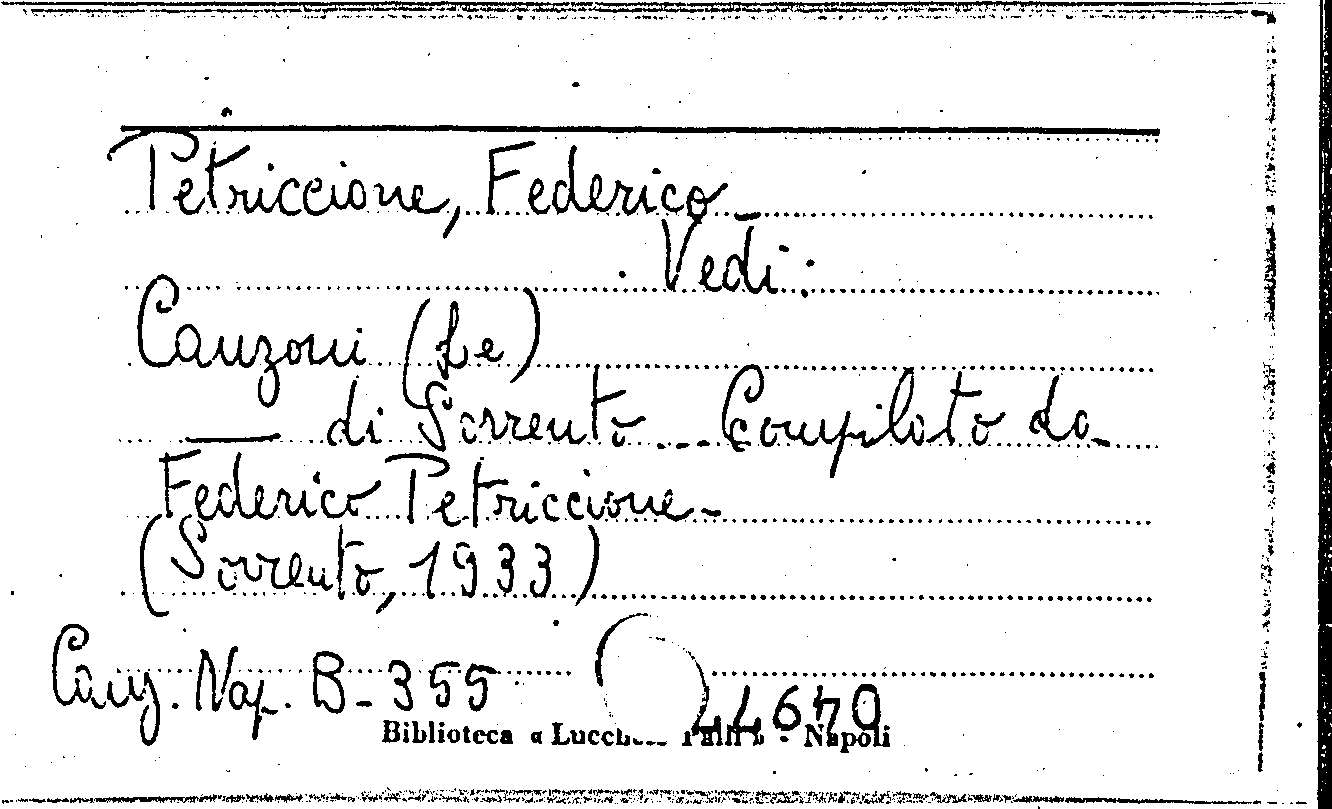 Petriccione, Federico_
Vedi:
Canzoni (Le)
___ di Sorrento... Compilato da
Federico Petriccione-
(Sorrento, 1933)
Canz. Nap. B-355
Biblioteca « - Napoli